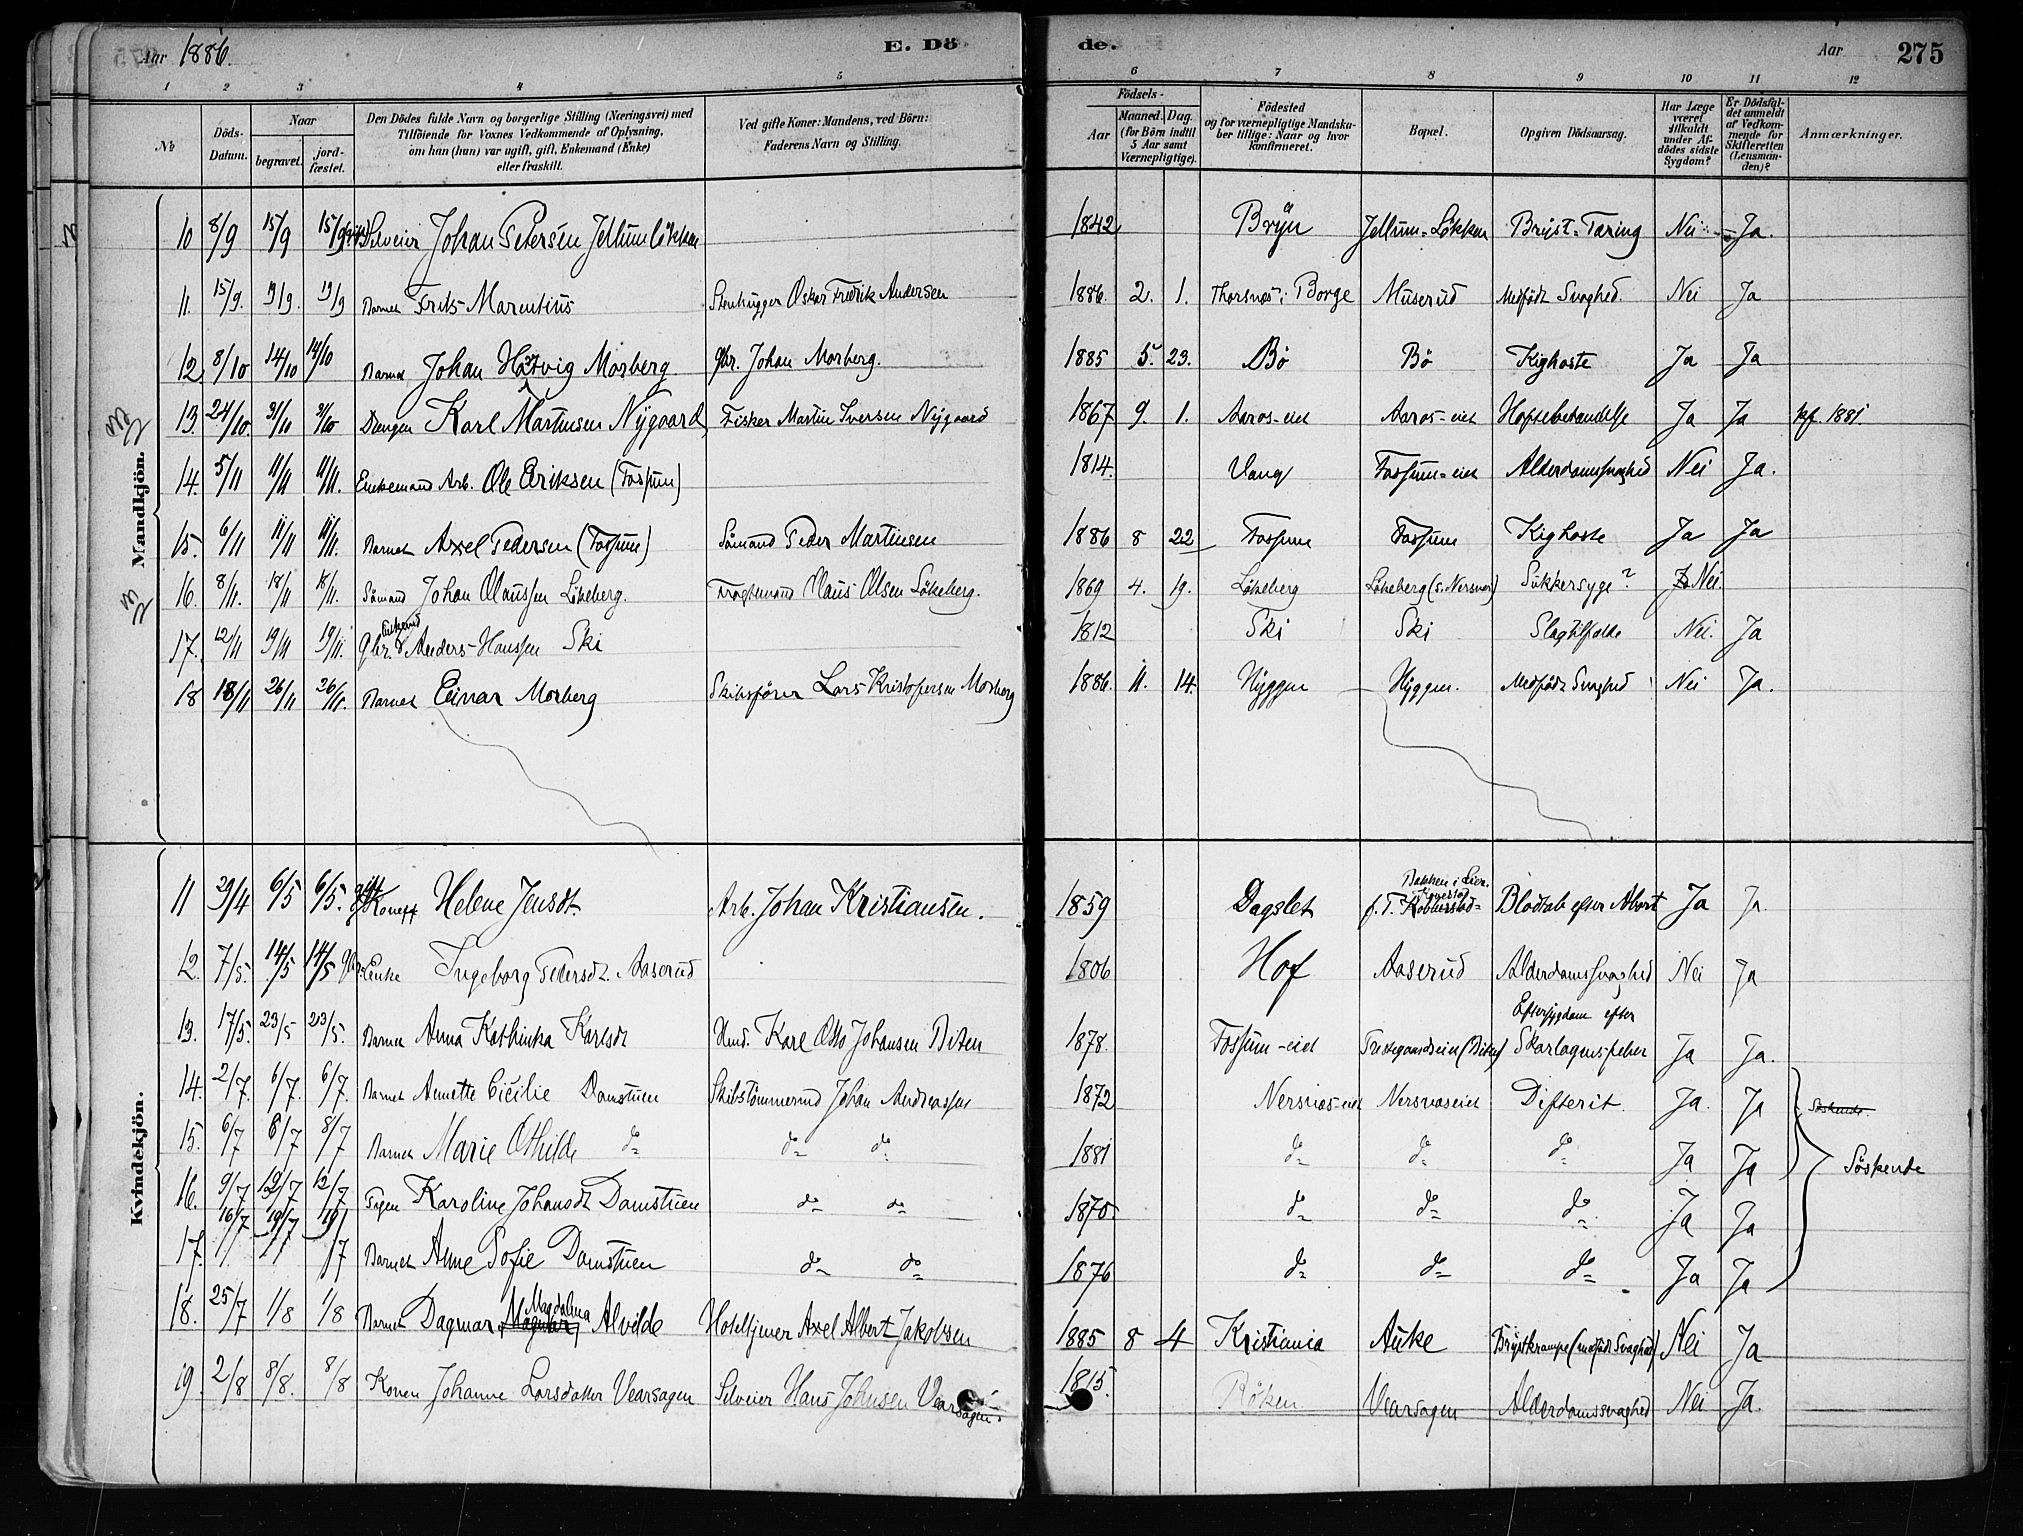 Aar 1886. E. Dö de. Aar 275
1 2 3 4 5 6 7 8 9 10 11 12
№
Döds-Datum.
Naar
begravet.
jord-fæstet.
Den Dödes fulde Navn og borgerlige Stilling (Næringsvei) med
Tilföiende for Voxnes Vedkommende af Oplysning,
om han (hun) var ugift, gift, Enkemand (Enke)
eller fraskilt.
Ved gifte Koner: Mandens, ved Börn:
Faderens Navn og Stilling.
Födsels-
Aar
Maaned. Dag.
(for Börn indtil
5 Aar samt
Værnepligtige).
Födested
og for værnepligtige Mandska-
ber tillige: Naar og hvor
konfirmeret.
Bopæl.
Opgiven Dödsaarsag.
Har Læge
været
tilkaldt
under Af-
dödes sidste
Sygdom?
Er Dödsfal-
det anmeldt
af Vedkom-
mende for
Skifteretten
(Lensman-
den)?
Anmærkninger.
Mandkjön.
10 8/9 15/9 15/9 Selveier Johan Petersen Jellumlökken 1842 Bryn Jellum-Lökken Bryst-Tæring Nei Ja.
11. 15/9. 19/9. 19/9 Barnet Frits Marentius Stenhugger Oskar Fredrik Andersen 1886. 2. 1. Thorsnæs i Borge Muserud Medfödt Svaghed. Nei Ja
12. 8/10 14/10 14/10 Barnet Johan Hartvig Morberg Gbr. Johan Morberg. 1885 5. 23. Bö Bö Kighoste Ja Ja
13. 24/10. 31/10 31/10 Drengen Karl Martinsen Nygaard Fisker Martin Iversen Nygaard 1867 9. 1. Aaros-eiet Aaros-eiet Hoftebetændelse Ja Ja kf. 1881.
14. 5/11 11/11 11/11. Enkemand Arb. Ole Eriksen (Fossum) 1814. Vang Fossum-eiet Alderdomssvaghed Nei Ja.
15. 6/11 11/11 11/11. Barnet Axel Pedersen (Fossum) Sömand Peder Martinsen 1886 8 22 Fossum Fossum Kighoste Ja Ja
16. 8/11. 18/11 18/11. Sömand Johan Olaussen Lökeberg. Fragtemand Olaus Olsen Lökeberg. 1869 4. 19. Lökeberg Lökeberg (s. Nersnes) Sukkersyge? Nei.
17. 12/11 19/11 19/11. Gbr. Enkemd Anders Hanssen Ski 1812 Ski Ski Slagtilfælde Nei. Ja
18 18/11 26/11 26/11. Barnet Einar Morberg Skibsförer Lars Kristofersen Morberg 1886. 11. 14. Hyggen Hyggen. Medfödt Svaghed Nei Ja.
Kvindekjön.
11 29/4 6/5 6/5. gift Kone Helene Jensdt. Arb. Johan Kristiansen. 1859 Dagslet f. T. Bakken i Lier. Blodtab efter Abort Ja Ja.
12. 7/5. 14/5 14/5 Gbr. Enke Ingeborg Pedersdt. Aaserud 1806 Hof Aaserud Alderdomssvaghed Nei Ja
13. 17/5. 23/5 23/5. Barnet Anna Kathinka Karlsdt Karl Otto Johansen Biten 1878. Fossum-eiet Eftersygdom efter Skarlagensfeber Ja Ja.
14. 2/7. 6/7. 6/7. Barnet Annette Cicilie Damstuen Skibstömmermd Johan Andreassen 1872 Nersnæs-eiet Nersnæseiet Difterit. Ja. Ja Söskende.
15. 6/7 8/7 8/7 Barnet Marie Othilde do do do 1881 do do do Ja Ja Söskende
16. 9/7 12/7 12/7 Pigen Karoline Johansdt Damstuen do do 1870. do do do Ja Ja
17. 16/7 19/7 19/7 Barnet Anne Sofie Damstuen do do 1876 do do do Ja Ja
18. 25/7 1/8 1/8 Barnet Dagmar Magdalena Alvilde Hoteltjener Axel Albert Jakobsen 1885 8 4 Kristiania Auke Brystkrampe (medfödt Svaghed) Nei Ja
19. 2/8 8/8. 8/8 Konen Johanne Larsdatter Vearsagen Selveier Hans Johnsen Vearsagen. 1815. Röken Vearsagen Alderdomssvaghed Nei Ja.